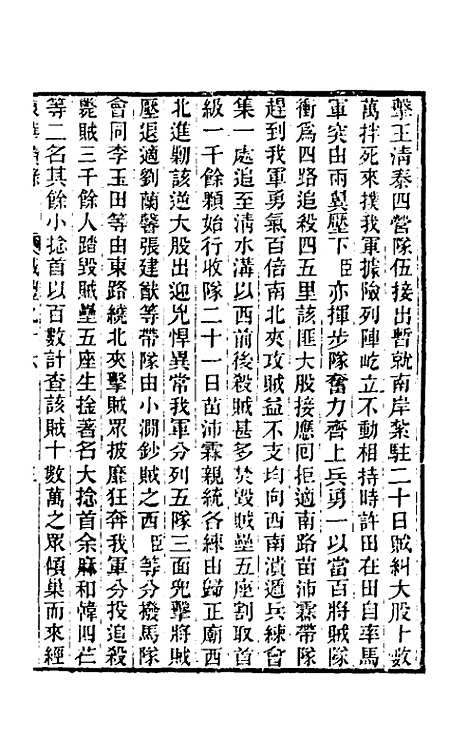 擊王淸泰四營隊伍接出暫就南岸紮駐二十日賊糾大股十數
萬拌死來撲我軍據險列陣屹立不動相持時許田在田自率馬
軍突由兩翼壓下臣亦揮步隊奮力齊上兵勇一以當百將賊隊
衝為四路追殺四五里該匪大股接應回拒適南路苗沛霖帶隊
趕到我軍勇氣百倍南北夾攻賊益不支均向西南潰遁兵練會
集一處追至淸水溝以西前後殺賊甚多焚毀賊壘五座割取首
級一千餘顆始行收隊二十一日苗沛霖親統各練由歸正廟西
北進勦該逆大股出迎兇悍異常我軍分列五隊三面兜擊將賊
壓退適劉蘭馨張建猷等帶隊由小澗鈔賊之西臣等分撥馬隊
會同李玉田等由東路繞北夾擊賊眾披靡狂奔我軍分投追殺
斃賊三千餘人踏毀賊壘五座生擒著名大捻首余麻和韓四芒
等二名其餘小捻首以百數計查該賊十數萬之眾傾巢而來經